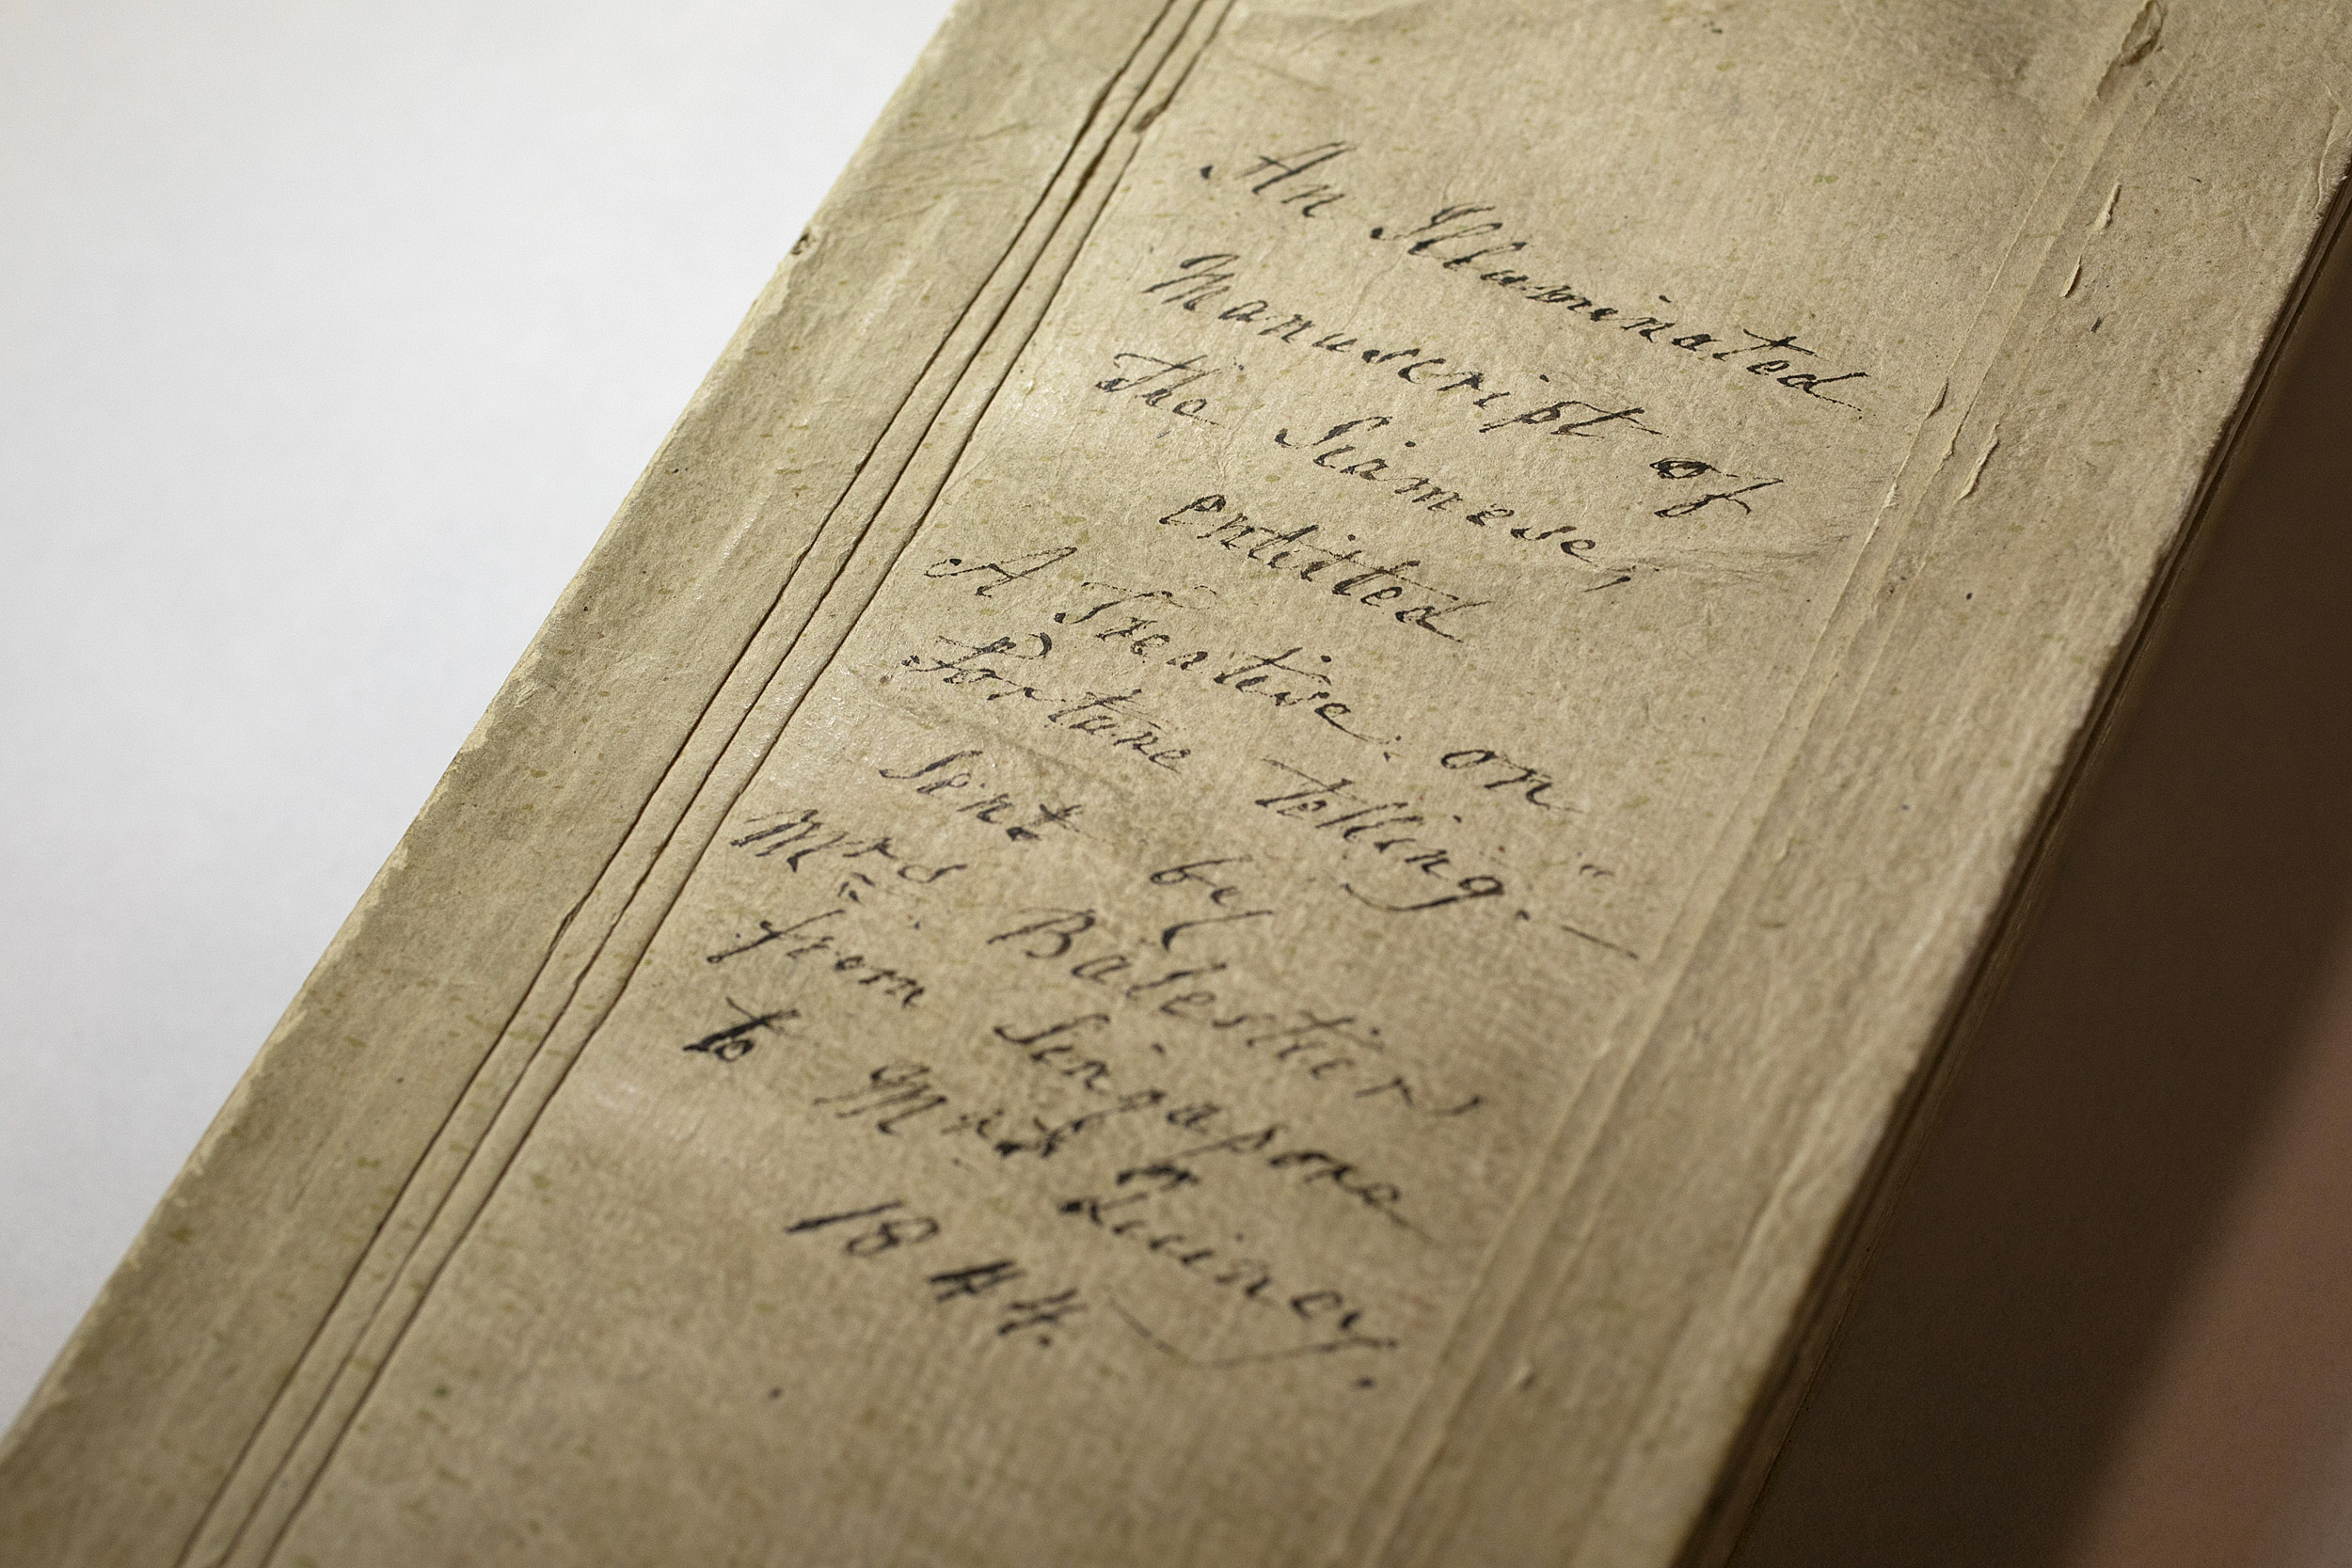 An Illuminated
Manuscript of
the Siamese,
entitled
A Treatise on
Fortune telling."—
Sent by
Mrs Balestier
from Singapore
to Mrs Quincy.
1844.